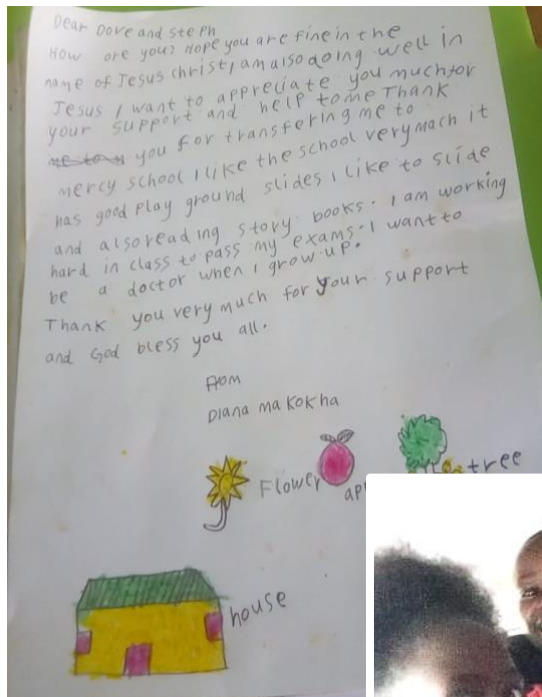 Dear Dove and steph
How are you? Hope you are fine in the
name of Jesus christ, I am also doing well in
Jesus I want to appreciate you much for
your support and help to me Thank
you for transfering me to
mercy school I like the school very mach it
has good play ground slides I like to slide
and also reading story books. I am working
hard in class to pass my exams. I want to
be a doctor when I grow up.
Thank you very much for your support
and God bless you all.
From
Diana makokha
Flower
tree
house